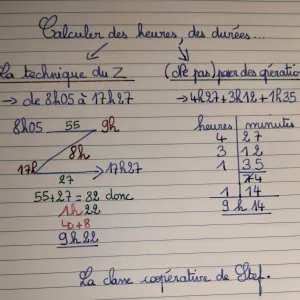 Calculer des heures, des durées...
La technique du Z
→ de 8h05 à 17h27
8h05 55 9h
8h
17h → 17h27
27
55+27 = 82 donc
1h22
+8
9h22
(ne pas) poser des opérations
→ 4h27+3h12+1h35
heures minutes
4 27
3 12
1 35
74
1 14
9h14
La classe coopérative de Stef.